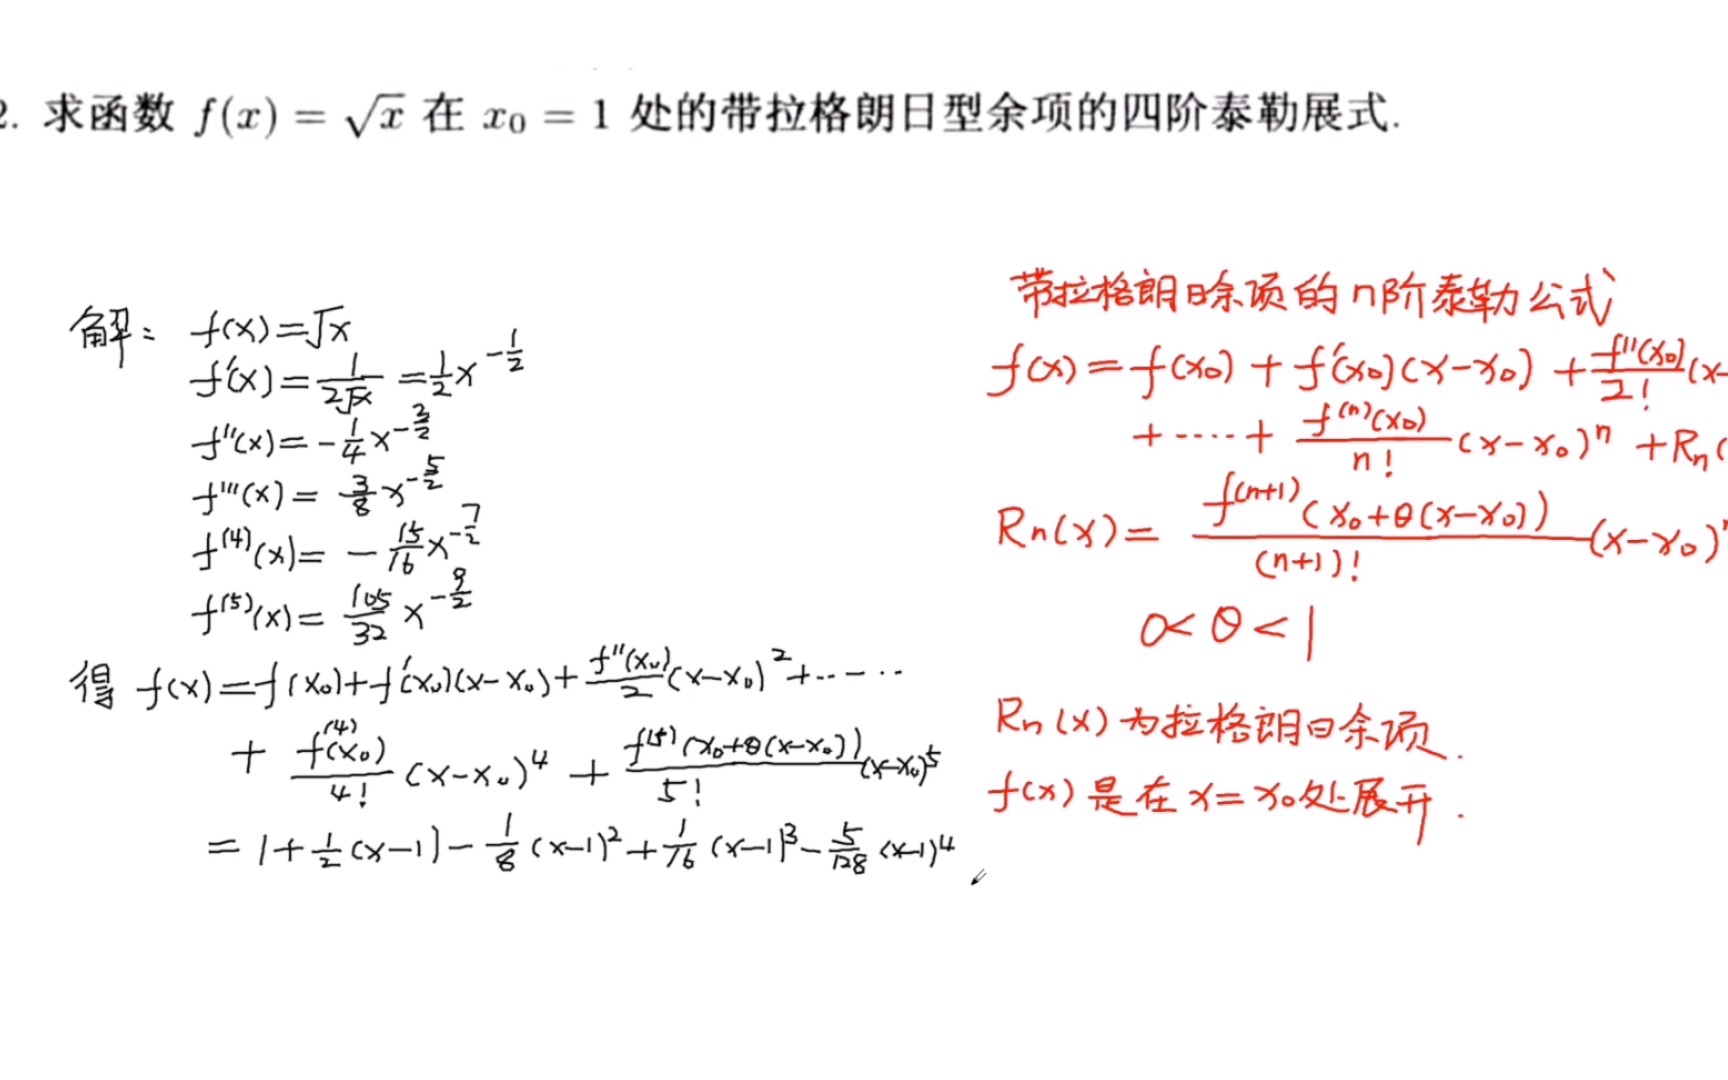 2. 求函数 f(x) = √x 在 x₀ = 1 处的带拉格朗日型余项的四阶泰勒展式.
解: f(x)=√x
f'(x)=1/(2√x) =1/2 x^(-1/2)
f''(x)= -1/4 x^(-3/2)
f'''(x)= 3/8 x^(-5/2)
f^(4)(x)= -15/16 x^(-7/2)
f^(5)(x)= 105/32 x^(-9/2)
得 f(x)=f(x₀)+f'(x₀)(x-x₀)+f''(x₀)/2 (x-x₀)²+……
+ f^(4)(x₀)/4! (x-x₀)⁴ + f^(5)(x₀+θ(x-x₀))/5! (x-x₀)⁵
= 1+1/2(x-1)-1/8(x-1)²+1/16(x-1)³-5/128(x-1)⁴
带拉格朗日余项的n阶泰勒公式
f(x)=f(x₀)+f'(x₀)(x-x₀)+f''(x₀)/2! (x-
+……+ f^(n)(x₀)/n! (x-x₀)ⁿ +Rn(
Rn(x)= f^(n+1)(x₀+θ(x-x₀))/(n+1)! (x-x₀)ⁿ
0<θ<1
Rn(x)为拉格朗日余项.
f(x)是在x=x₀处展开.